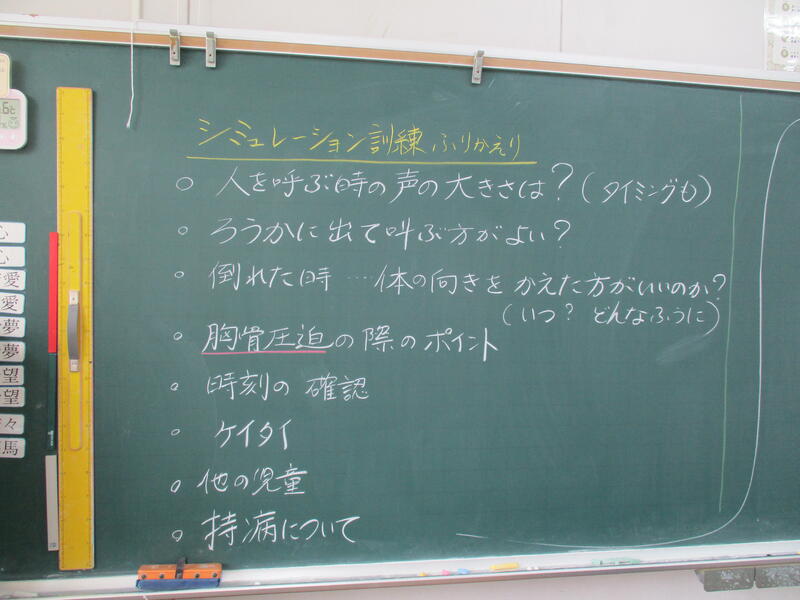 シミュレーション訓練 ふりかえり
○ 人を呼ぶ時の声の大きさは？(タイミングも)
○ ろうかに出て叫ぶ方がよい？
○ 倒れた時…体の向きをかえた方がいいのか？
(いつ？ どんなふうに)
○ 胸骨圧迫の際のポイント
○ 時刻の確認
○ ケイタイ
○ 他の児童
○ 持病について
心
心
愛
愛
夢
夢
望
望
々
馬